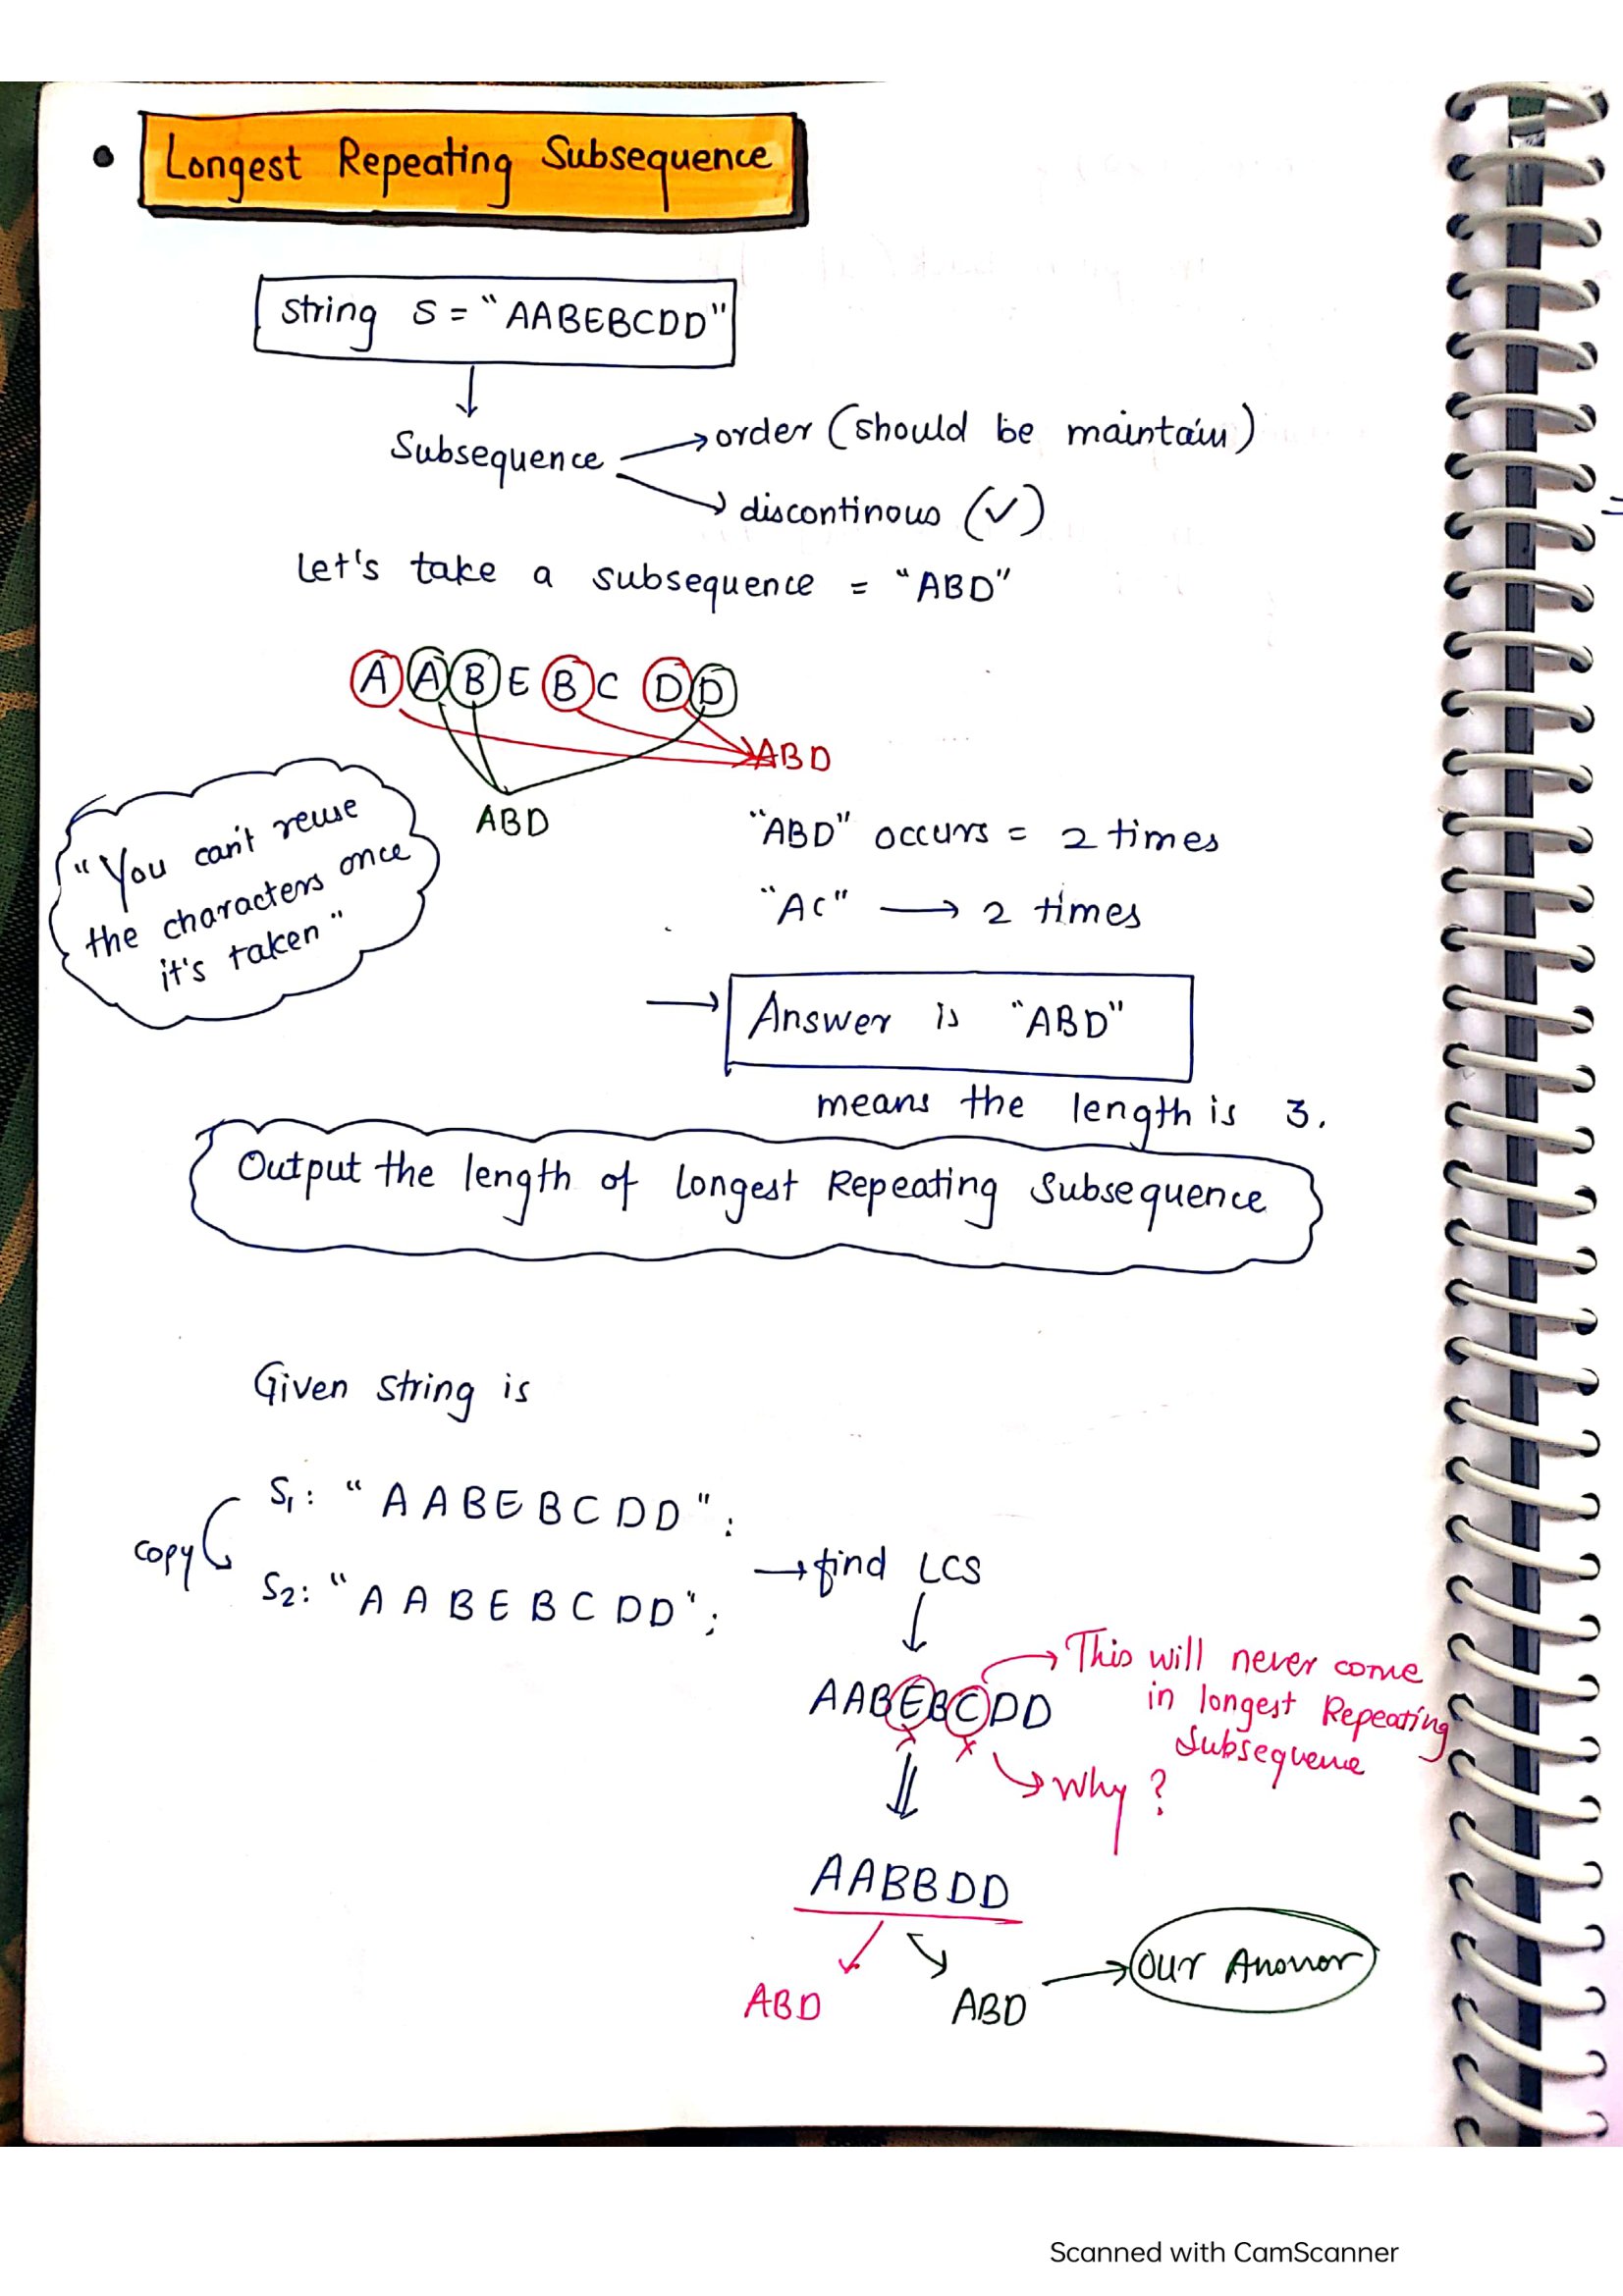 • Longest Repeating Subsequence
String S = "AABEBCDD"
Subsequence → order (should be maintain)
→ discontinous (✓)
Let's take a subsequence = "ABD"
A A B E B C D D
ABD
ABD
"You can't reuse
the characters once
it's taken"
"ABD" occurs = 2 times
"AC" → 2 times
→ Answer is "ABD"
means the length is 3.
Output the length of Longest Repeating Subsequence
Given string is
S1: "AABEBCDD";
copy
S2: "AABEBCDD";
→ find LCS
AABEBCDD
x x
→ This will never come
in longest Repeating
Subsequence
→ Why?
AABBDD
ABD ABD → Our Answer
=
Scanned with CamScanner